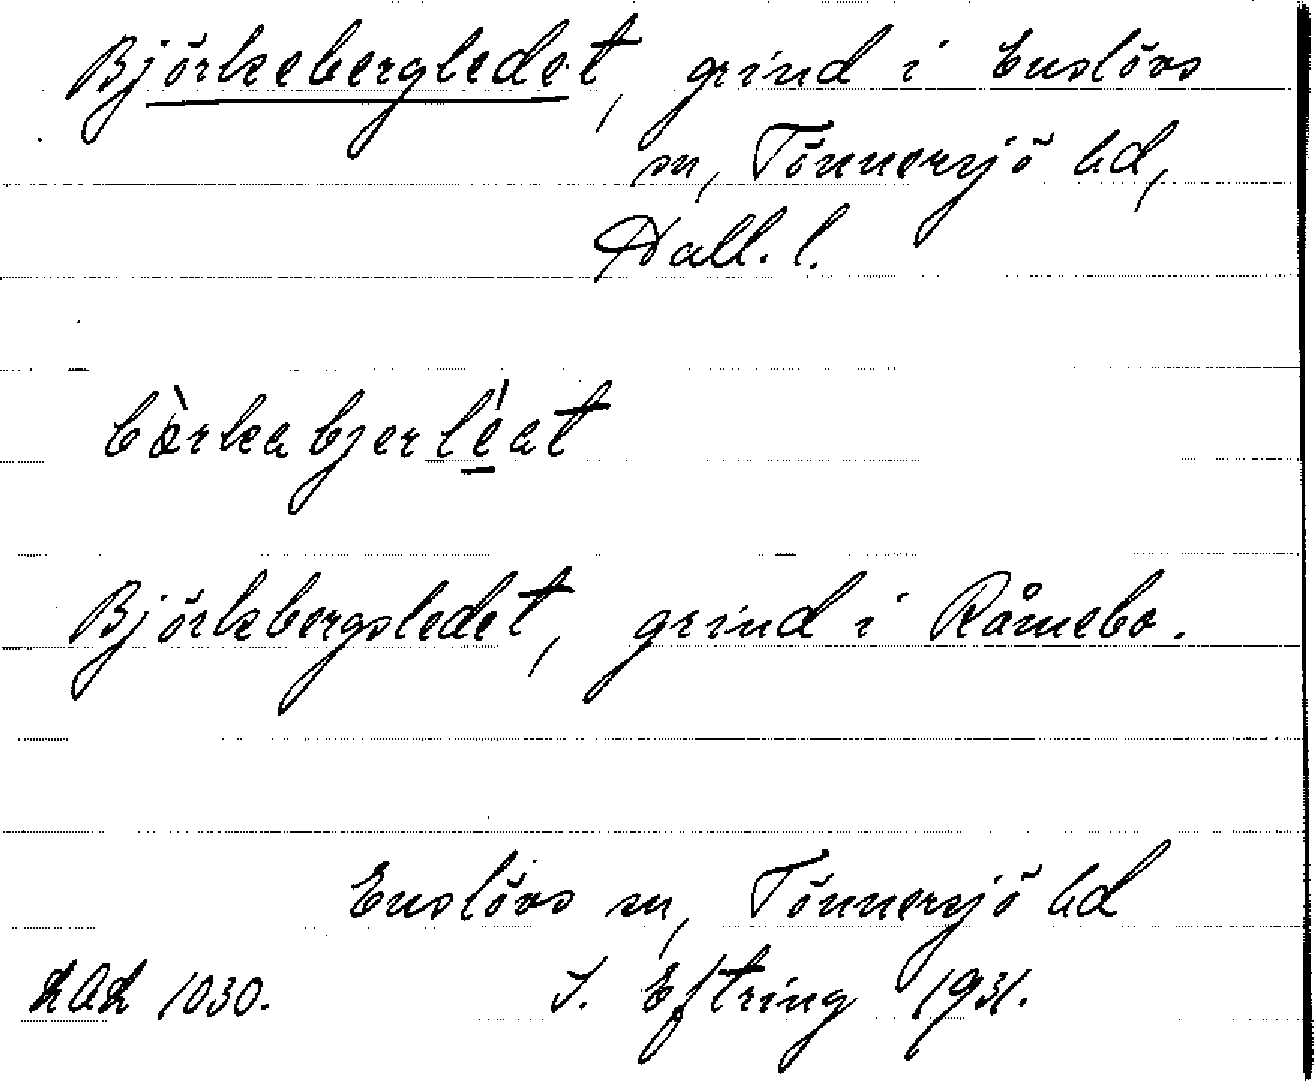 Björkebergledet, grind i Enslövs
sn, Tönnersjö hd,
Hall. l.
bœ̀rkabjerlèat
Björkbergsledet, grind i Råmebo.
Enslövs sn, Tönnersjö hd
LAL 1030. S. Eftring 1931.